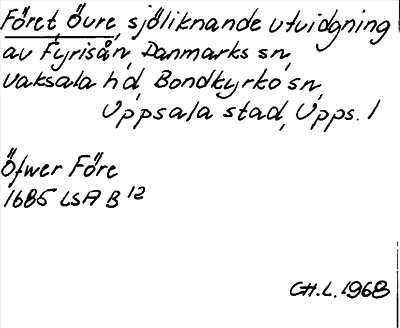 Föret, Övre, sjöliknande utvidgning
av Fyrisån, Danmarks sn,
Vaksala hd, Bondkyrko sn,
Uppsala stad, Upps. l
Öfwer Före
1685 LSA B 12
CH.L. 1968